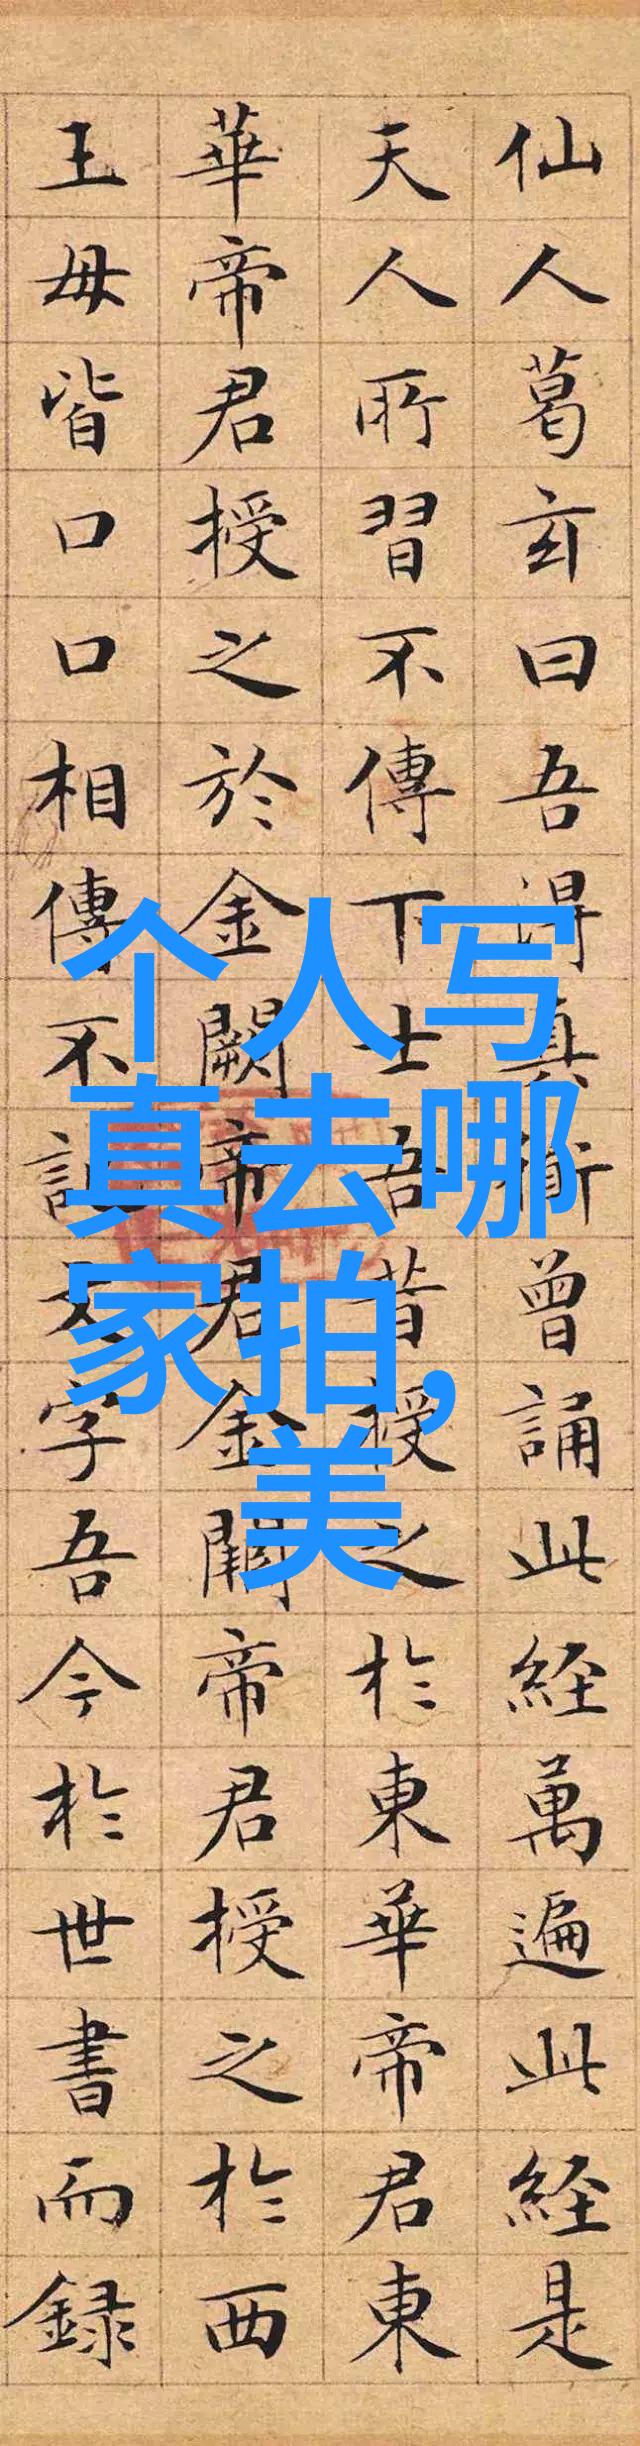 仙人葛玄曰吾得真衜曾誦此経萬遍此経是
天人所習不傳下士吾昔授之於東華帝君東
華帝君授之於金闕帝君金闕帝君授之於西
王母皆口口相傳不記文字吾今於世書而録
个人写
真去哪
家拍,
美